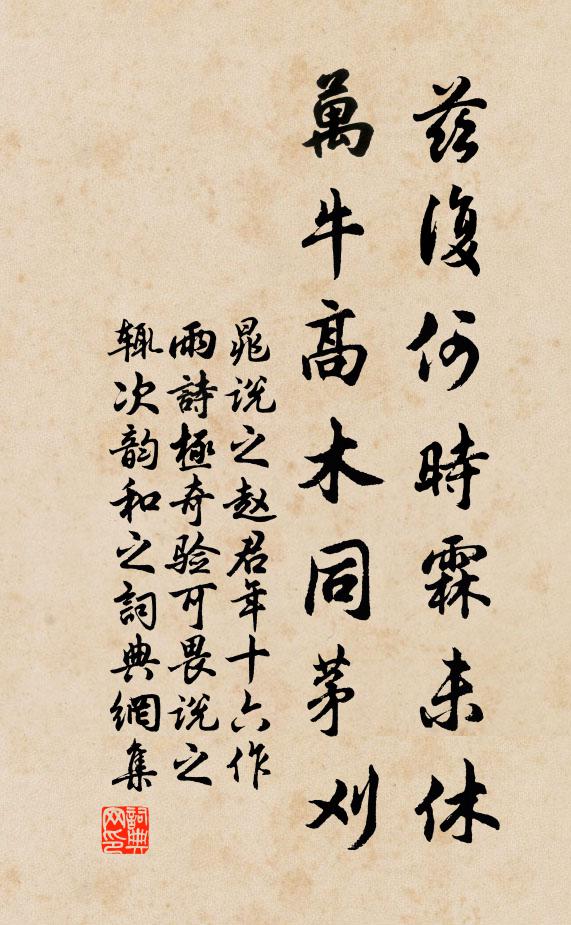 茲復何時霖未休
萬牛高木同茅刈
晁说之赵君年十六作
雨詩極奇验可畏说之
辄次韵和之詞典網集
詞典網印